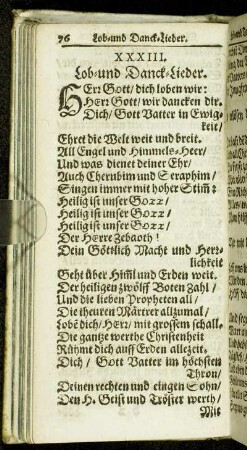 76 Lob-und Danck-Lieder.
XXXIII.
Lob-und Danck-Lieder.
HErr Gott/ dich loben wir:
HErr Gott/ wir dancken dir.
Dich/ Gott Vatter in Ewig-
keit/
Ehret die Welt weit und breit.
All Engel und Himmels-Heer/
Und was dienet deiner Ehr/
Auch Cherubim und Seraphim/
Singen immer mit hoher Stim̃:
Heilig ist unser GOtt/
Heilig ist unser GOtt/
Heilig ist unser GOtt/
Der HErre Zebaoth!
Dein Göttlich Macht und Herr-
lichkeit
Geht über Him̃l und Erden weit.
Der heiligen zwölff Boten Zahl/
Und die lieben Propheten all/
Die theuren Märtrer allzumal/
Lobë dich/ HErr/ mit grossem schall.
Die gantze werthe Christenheit
Rühmt dich auff Erden allezeit.
Dich/ Gott Vatter im höchsten
Thron/
Deinen rechten und eingen Sohn/
Den H. Geist und Tröster werth/
Mit